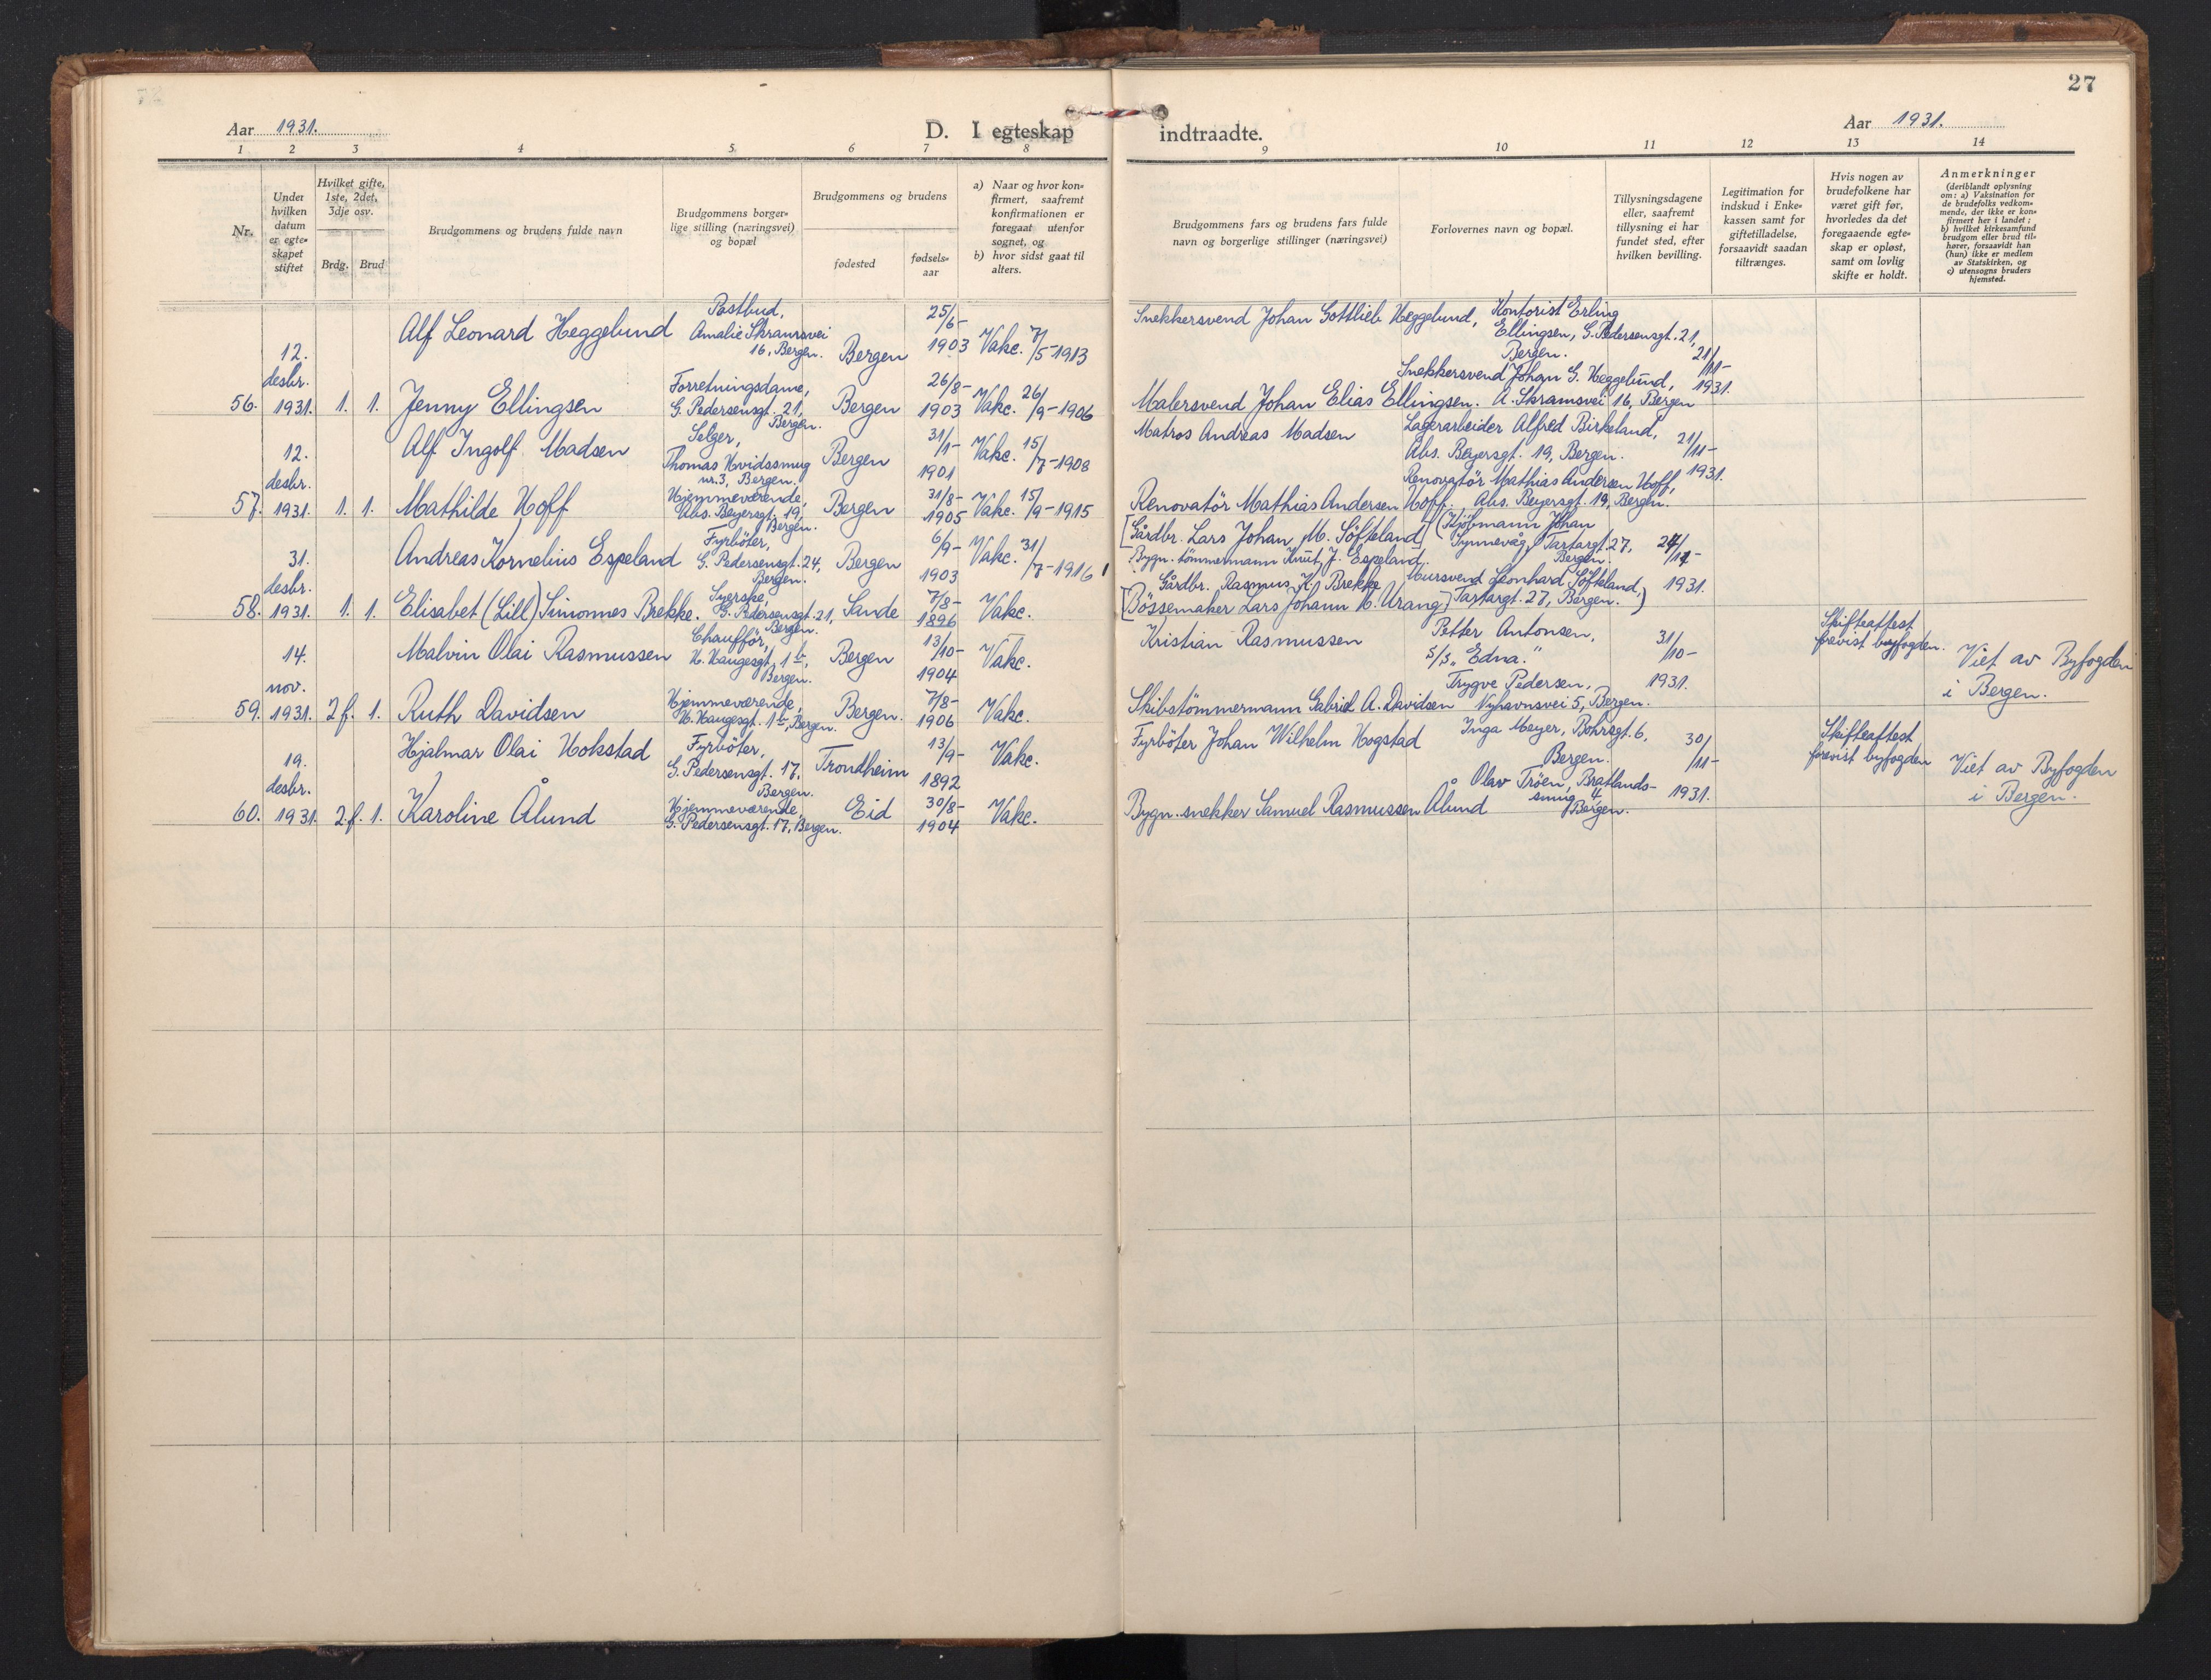 27
Aar 1931.
D. I egteskap indtraadte.
Aar 1931.
1 2 3 4 5 6 7 8 9 10 11 12 13 14
Nr.
Under
hvilken
datum
er egte-
skapet
stiftet
Hvilket gifte,
1ste, 2det,
3dje osv.
Brdg. Brud
Brudgommens og brudens fulde navn
Brudgommens borger-
lige stilling (næringsvei)
og bopæl
Brudgommens og brudens
fødested
fødsels-
aar
a) Naar og hvor kon-
firmert, saafremt
konfirmationen er
foregaat utenfor
sognet, og
b) hvor sidst gaat til
alters.
Brudgommens fars og brudens fars fulde
navn og borgerlige stillinger (næringsvei)
Forlovernes navn og bopæl.
Tillysningsdagene
eller, saafremt
tillysning ei har
fundet sted, efter
hvilken bevilling.
Legitimation for
indskud i Enke-
kassen samt for
giftetilladelse,
forsaavidt saadan
tiltrænges.
Hvis nogen av
brudefolkene har
været gift før,
hvorledes da det
foregaaende egte-
skap er opløst,
samt om lovlig
skifte er holdt.
Anmerkninger
(deriblandt oplysning
om: a) Vaksination for
de brudefolks vedkom-
mende, der ikke er kon-
firmert her i landet;
b) hvilket kirkesamfund
brudgom eller brud til-
hører, forsaavidt han
(hun) ikke er medlem
av Statskirken, og
c) utensogns bruders
hjemsted.
56.
12.
desbr.
1931.
1. 1.
Alf Leonard Heggelund
Postbud,
Amalie Skramsvei
16, Bergen.
Bergen
25/6-
1903
Vakc. 7/5-1913
Snekkersvend Johan Gottlieb Heggelund,
Kontorist Erling
Ellingsen, G. Pedersensgt. 21,
Bergen.
21/11-
1931.
Jenny Ellingsen
Forretningsdame,
G. Pedersensgt. 21,
Bergen.
Bergen
26/8-
1903
Vakc. 26/9-1906
Malersvend Johan Elias Ellingsen.
Snekkersvend Johan G. Heggelund,
A. Skramsvei 16, Bergen
57.
12.
desbr.
1931.
1. 1.
Alf Ingolf Madsen
Selger,
Thomas Hvidssmug
nr. 3, Bergen.
Bergen
31/1-
1901
Vakc. 15/7-1908
Matros Andreas Madsen
Lagerarbeider Alfred Birkeland,
Abs. Beyersgt. 19, Bergen.
21/11-
1931.
Mathilde Hoff
Hjemmeværende,
Abs. Beyersgt. 19,
Bergen.
Bergen
31/8-
1905
Vakc. 15/9-1915
Renovatör Mathias Andersen Hoff.
Renovatör Mathias Andersen Hoff,
Abs. Beyersgt. 19, Bergen.
58.
31.
desbr.
1931.
1. 1.
Andreas Kornelius Espeland
Fyrböter,
G. Pedersensgt. 24,
Bergen.
Bergen
6/9-
1903
Vakc. 31/7-1916
[Gårdbr. Lars Johan M. Söfteland]
Bygn. tömmermann Knut J. Espeland.
(Kjöbmann Johan
Synnevåg, Tartargt. 27,
Bergen.
1931.
Elisabet (Lill) Simonnes Brekke.
Syerske,
G. Pedersensgt. 21,
Bergen.
Sande
7/8-
1896
Vakc.
Gårdbr. Rasmus K. Brekke
[Bössemaker Lars Johann M. Urang]
Mursvend Leonhard Söfteland,
Tartargt. 27, Bergen.)
59.
14.
nov.
1931.
2 f. 1.
Malvin Olai Rasmussen
Chaufför,
H. Haugesgt. 1 b,
Bergen.
Bergen
13/10-
1904
Vakc.
Kristian Rasmussen
Petter Antonsen,
S/S "Edna."
31/10-
1931.
Skifteattest
forevist byfogden.
Viet av Byfogden
i Bergen.
Ruth Davidsen
Hjemmeværende,
H. Haugesgt. 1 b, Bergen.
Bergen.
7/8-
1906
Vakc.
Skibstömmermann Gabriel A. Davidsen
Trygve Pedersen,
Nyhavnsvei 5, Bergen.
60.
19.
desbr.
1931.
2 f. 1.
Hjalmar Olai Hokstad
Fyrböter,
G. Pedersensgt. 17,
Bergen.
Trondheim
13/9-
1892
Vakc.
Fyrböter Johan Wilhelm Hogstad
Inga Meyer, Bohrsgt. 6,
Bergen.
30/11-
1931.
Skifteattest
forevist byfogden
Viet av Byfogden
i Bergen.
Karoline Ålund
Hjemmeværende,
G. Pedersensgt. 17, Bergen.
Eid
30/8-
1904
Vakc.
Bygn. snekker Samuel Rasmussen Ålund
Olav Tröen, Bratlands-
smug 4,
Bergen.